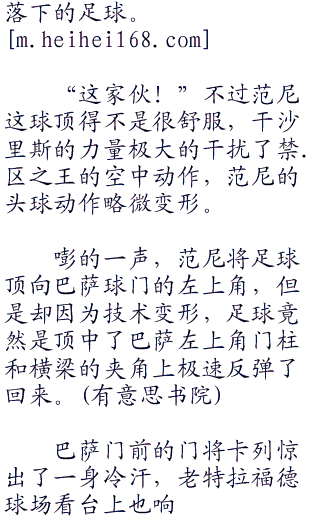 落下的足球。
[m.heihei168.com]
“这家伙！”不过范尼
这球顶得不是很舒服，干沙
里斯的力量极大的干扰了禁.
区之王的空中动作，范尼的
头球动作略微变形。
嘭的一声，范尼将足球
顶向巴萨球门的左上角，但
是却因为技术变形，足球竟
然是顶中了巴萨左上角门柱
和横梁的夹角上极速反弹了
回来。(有意思书院)
巴萨门前的门将卡列惊
出了一身冷汗，老特拉福德
球场看台上也响